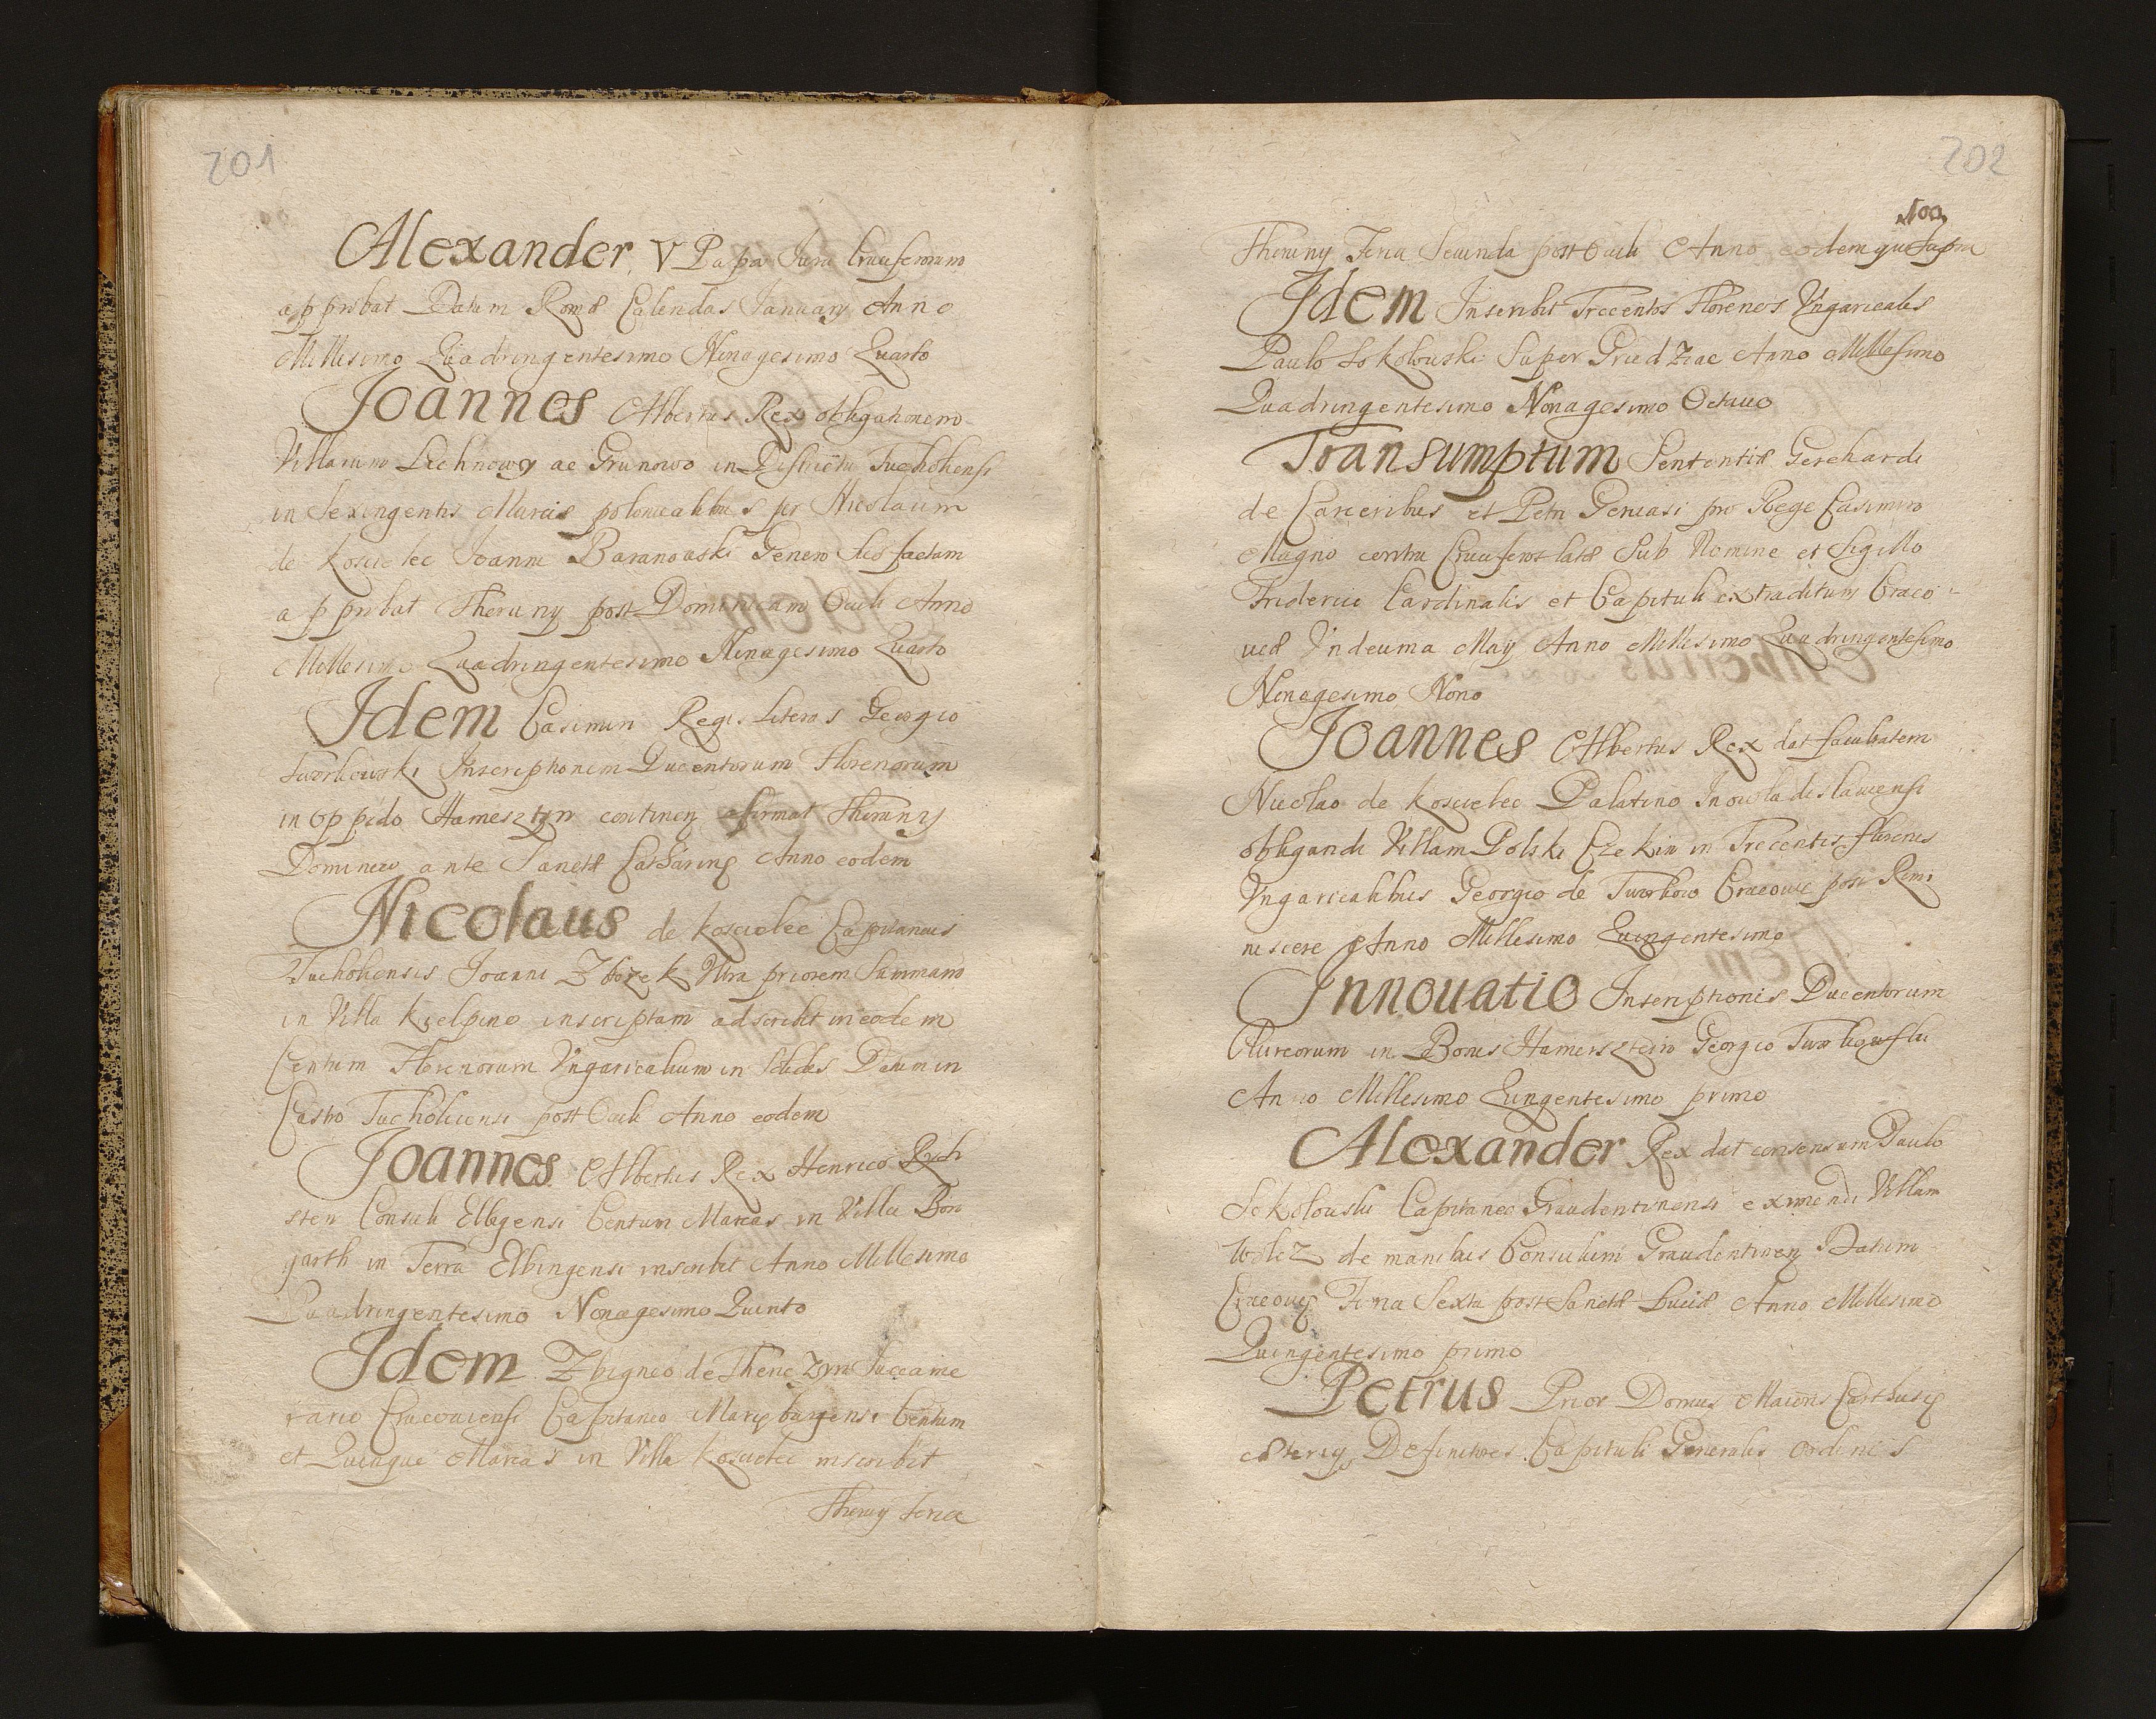 201
Alexander V Papa Jura Cruciferorum
approbat Datum Romæ Calendas January Anno
Millesimo Quadringentesimo Nonagesimo Quarto
Joannes Albertus Rex obligationem
Villarum Lichnowy ac Grunowo in Districtu Tucholiensi
in Sexingentis Marcis polonicalibus per Nicolaum
de Koscielec Joanni Baranowski Genero suo factam
approbat Thoruny post Dominicam Oculi Anno
Millesimo Quadringentesimo Nonagesimo Quarto
Idem Casimiri Regis Literas Georgio
Inscriptionem Ducentorum Florenorum
in Oppido Hamersztyn continen affirmat Thoruny
Dominico ante Sanctæ Catharinę Anno eodem
Nicolaus de Koscielec Capitaneus
Tucholiensis Joanni Zbozek Ultra priorem Summam
in Villa Kielpino inscriptam adscribit in eodem
Centum Florenorum Ungaricalium in Datum in
Castro Tucholiensi post Oculi Anno eodem
Joannes Albertus Rex Henrico
sten Consuli Elbigensi Centum Marcas in Villa Bon
garth in Terra Elbingensi inscribit Anno Millesimo
Quadringentesimo Nonagesimo Quinto
Idem Zbigneo de Thenczyn Succame
rario Cracoviensi Capitaneo Marięburgensi Centum
et Quinque Marcas in Villa Koscielec inscribit
Thoruny feria
202
100
Thoruny Feria Secunda post Oculi Anno eodem quo supra
Idem Inscribit Trecentos Florenos Ungaricales
Paulo Sokolouski Super Grudziac Anno Millesimo
Quadringentesimo Nonagesimo Octauo
Transumptum Sententiæ Gerchardi
de Carceribus et Petri Geruasi pro Rege Casimiro
Magno contra Cruciferos latæ Sub Nomine et Sigillo
Friderici Cardinalis et Capituli extraditum Craco
uiæ Undecima May Anno Millesimo Quadringentesimo
Nonagesimo Nono
Joannes Albertus Rex dat facultatem
Nicolao de Koscielec Palatino Inowladislauiensi
obligandi Villam Polski Czekin in Trecentis florenis
Ungaricalibus Georgio de Tworkow Cracouię post Remi
niscere Anno Millesimo Quingentesimo
Innouatio Inscriptionis Ducentorum
Aureorum in Bonis Hamersztein Georgio
Anno Millesimo Quingentesimo primo
Alexander Rex dat consensum Paulo
Sokolouski Capitaneo Graudentinensi eximendi Villam
Wolez de manibus Consulum Graudentinen Datum
Cracouię Feria Sexta post Sanctæ Luciæ Anno Millesimo
Quingentesimo primo
Petrus Prior Domus Maioris Carthusię
cæteriq Definitores Capituli Generalis Ordinis